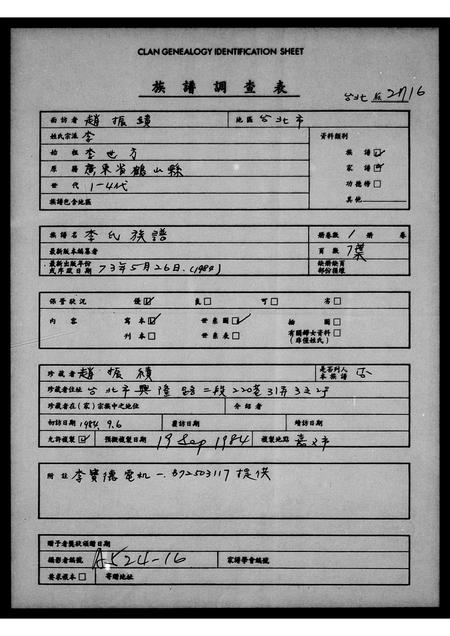 CLAN GENEALOGY IDENTIFICATION SHEET
族譜調查表
台北 2716
面訪者 趙振績 地區 台北市
姓氏宗派 李 資料類別
始祖 李世方 族譜 ☑
原籍 廣東省鶴山縣 家譜 ☑
世代 1-4代 功德榜 □
族譜包含地區 其他
族譜名 李氏族譜 册卷數 1 册 卷
最新版本編纂者 頁數 7葉
最新出版年份或序跋日期 73年5月26日.(1984) 缺册缺頁部份損壞
保管狀況 優 ☑ 良 □ 可 □ 劣 □
內容 寫本 ☑ 世系圖 ☑ 插圖 □
刊本 □ 世系表 □ 有關婦女資料 □ (非僅姓氏)
珍藏者 趙振績 是否列入本族譜 否
珍藏者住址 台北市興隆路二段220巷31弄3之2號
珍藏者在(家)宗族中之地位 介紹者
初訪日期 1984.9.6 覆訪日期 續訪日期
允許複製 ☑ 預擬複製日期 19 Sep 1984 複製地點 臺北市
附註 李寶德電机一.B72503117提供
贈予者獎狀頒贈日期
攝影者編號 A524-16 家譜學會編號
要求複本 □ 寄贈地址